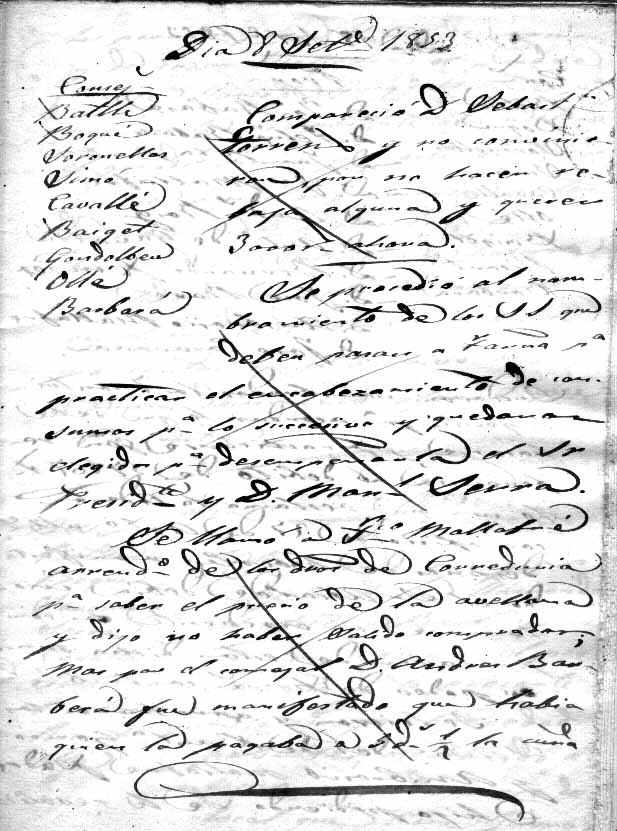 Dia 8 Set.e 1853
Consej
Batlle
Boqué
Soronellas
Simó
Cavallé
Baiget
Gondolbeu
Ollé
Barberá
Compareció D Sebast.n
Torrens y no convinie-
ron por no hacer re-
baja alguna y querer
3000 r.s ahora.
Se procedió al nom-
bramiento de los SS que
deben pasar a Tarrna p.a
practicar el encabezamiento de con-
sumos p.a lo succesivo y quedaron
elegidos p.a desempeñarla el Sr
Presid.te y D. Man.l Serra.
Se llamó a Fr.co Mallafré
arrend.o de los dros de Correduria
p.a saber el precio de la avellana
y dijo no haber salido comprador;
mas por el concejal D. Andres Bar-
berá fue manifestado que habia
quien la pagaba a 5 d.s 1/2 la